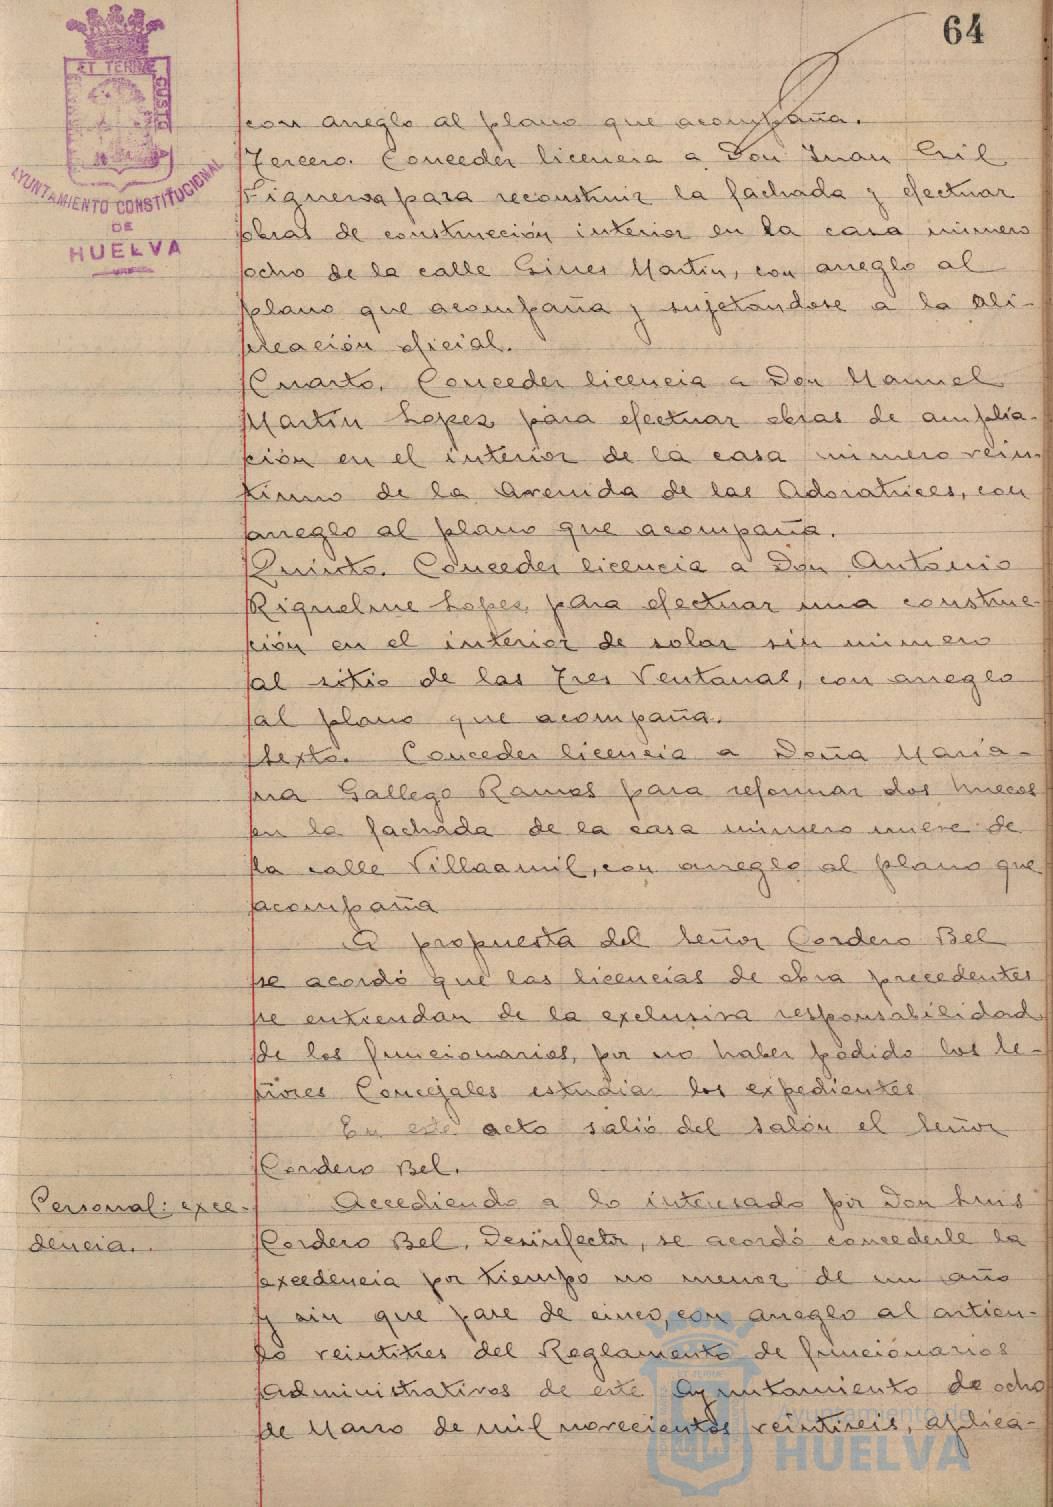 64
ET TERRÆ CUSTO
AYUNTAMIENTO CONSTITUCIONAL
DE
HUELVA
con arreglo al plano que acompaña.
Tercero. Conceder licencia a Don Juan Gil
Figueroa para reconstruir la fachada y efectuar
obras de construcción interior en la casa número
ocho de la calle Gines Martín, con arreglo al
plano que acompaña y sujetandose a la ali-
neación oficial.
Cuarto. Conceder licencia a Don Manuel
Martín Lopez para efectuar obras de amplia-
ción en el interior de la casa numero vein-
tiuno de la Avenida de las Adoratrices, con
arreglo al plano que acompaña.
Quinto. Conceder licencia a Don Antonio
Riquelme Lopez para efectuar una construc-
ción en el interior de solar sin numero
al sitio de las Tres Ventanas, con arreglo
al plano que acompaña.
Sexto. Conceder licencia a Doña Maria-
na Gallego Ramos para reformar dos huecos
en la fachada de la casa numero nueve de
la calle Villaamil, con arreglo al plano que
acompaña
A propuesta del Señor Cordero Bel
se acordó que las licencias de obra precedentes
se entiendan de la exclusiva responsabilidad
de los funcionarios, por no haber podido los Se-
ñores Concejales estudiar los expedientes
En este acto salió del salón el Señor
Cordero Bel.
Personal: exce-
dencia.
Accediendo a lo interesado por Don Luis
Cordero Bel, Desinfector, se acordó concederle la
excedencia por tiempo no menor de un año
y sin que pase de cinco, con arreglo al articu-
lo veintitres del Reglamento de funcionarios
administrativos de este Ayuntamiento de ocho
de Marzo de mil novecientos veintiseis, aplica-
Ayuntamiento de
HUELVA